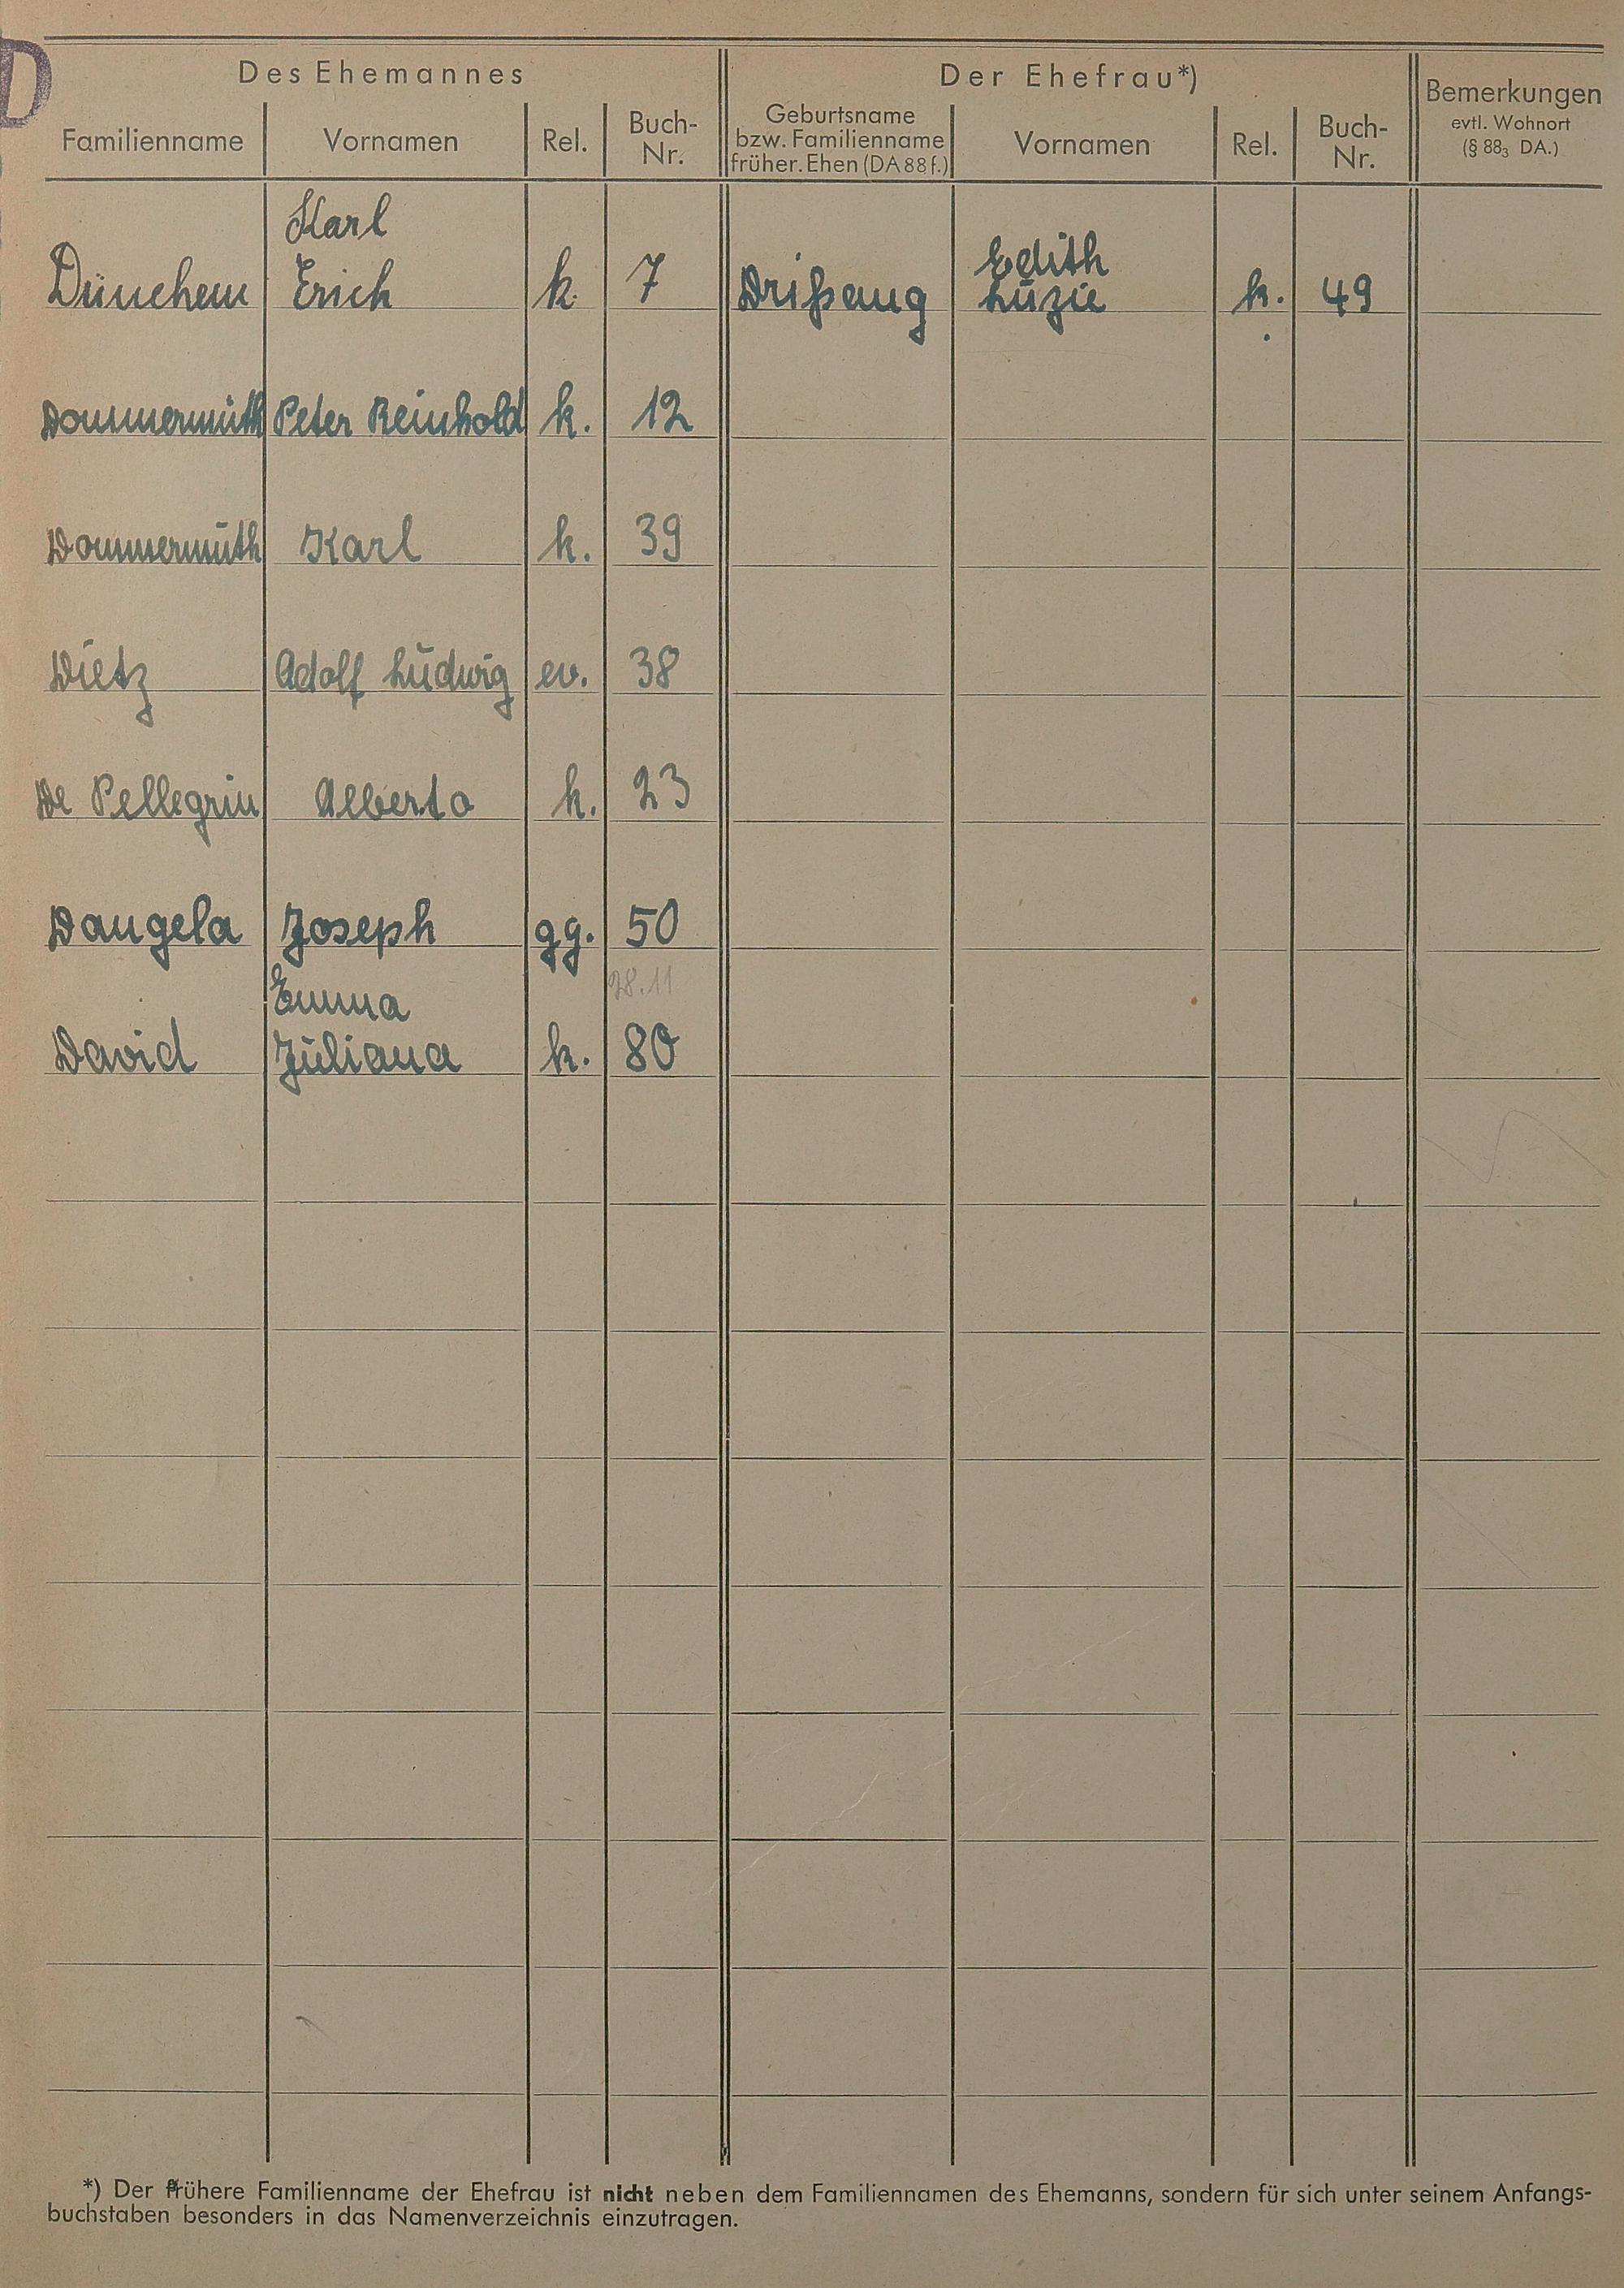 D
Des Ehemannes
Der Ehefrau*)
Bemerkungen
evtl. Wohnort
(§ 88₃ DA.)
Familienname
Vornamen
Rel.
Buch-
Nr.
Geburtsname
bzw. Familienname
früher. Ehen (DA 88 f.)
Vornamen
Rel.
Buch-
Nr.
Karl
Edith
Dünchem Erich k. 7 Drißang Luzie k. 49
Dommermuth Peter Reinhold k. 12
Dommermuth Karl k. 39
Dietz Adolf Ludwig ev. 38
De Pellegrin Alberto k. 23
Dangela Joseph gg. 50
Emma 28.11
David Juliana k. 80
*) Der frühere Familienname der Ehefrau ist nicht neben dem Familiennamen des Ehemanns, sondern für sich unter seinem Anfangs-
buchstaben besonders in das Namenverzeichnis einzutragen.